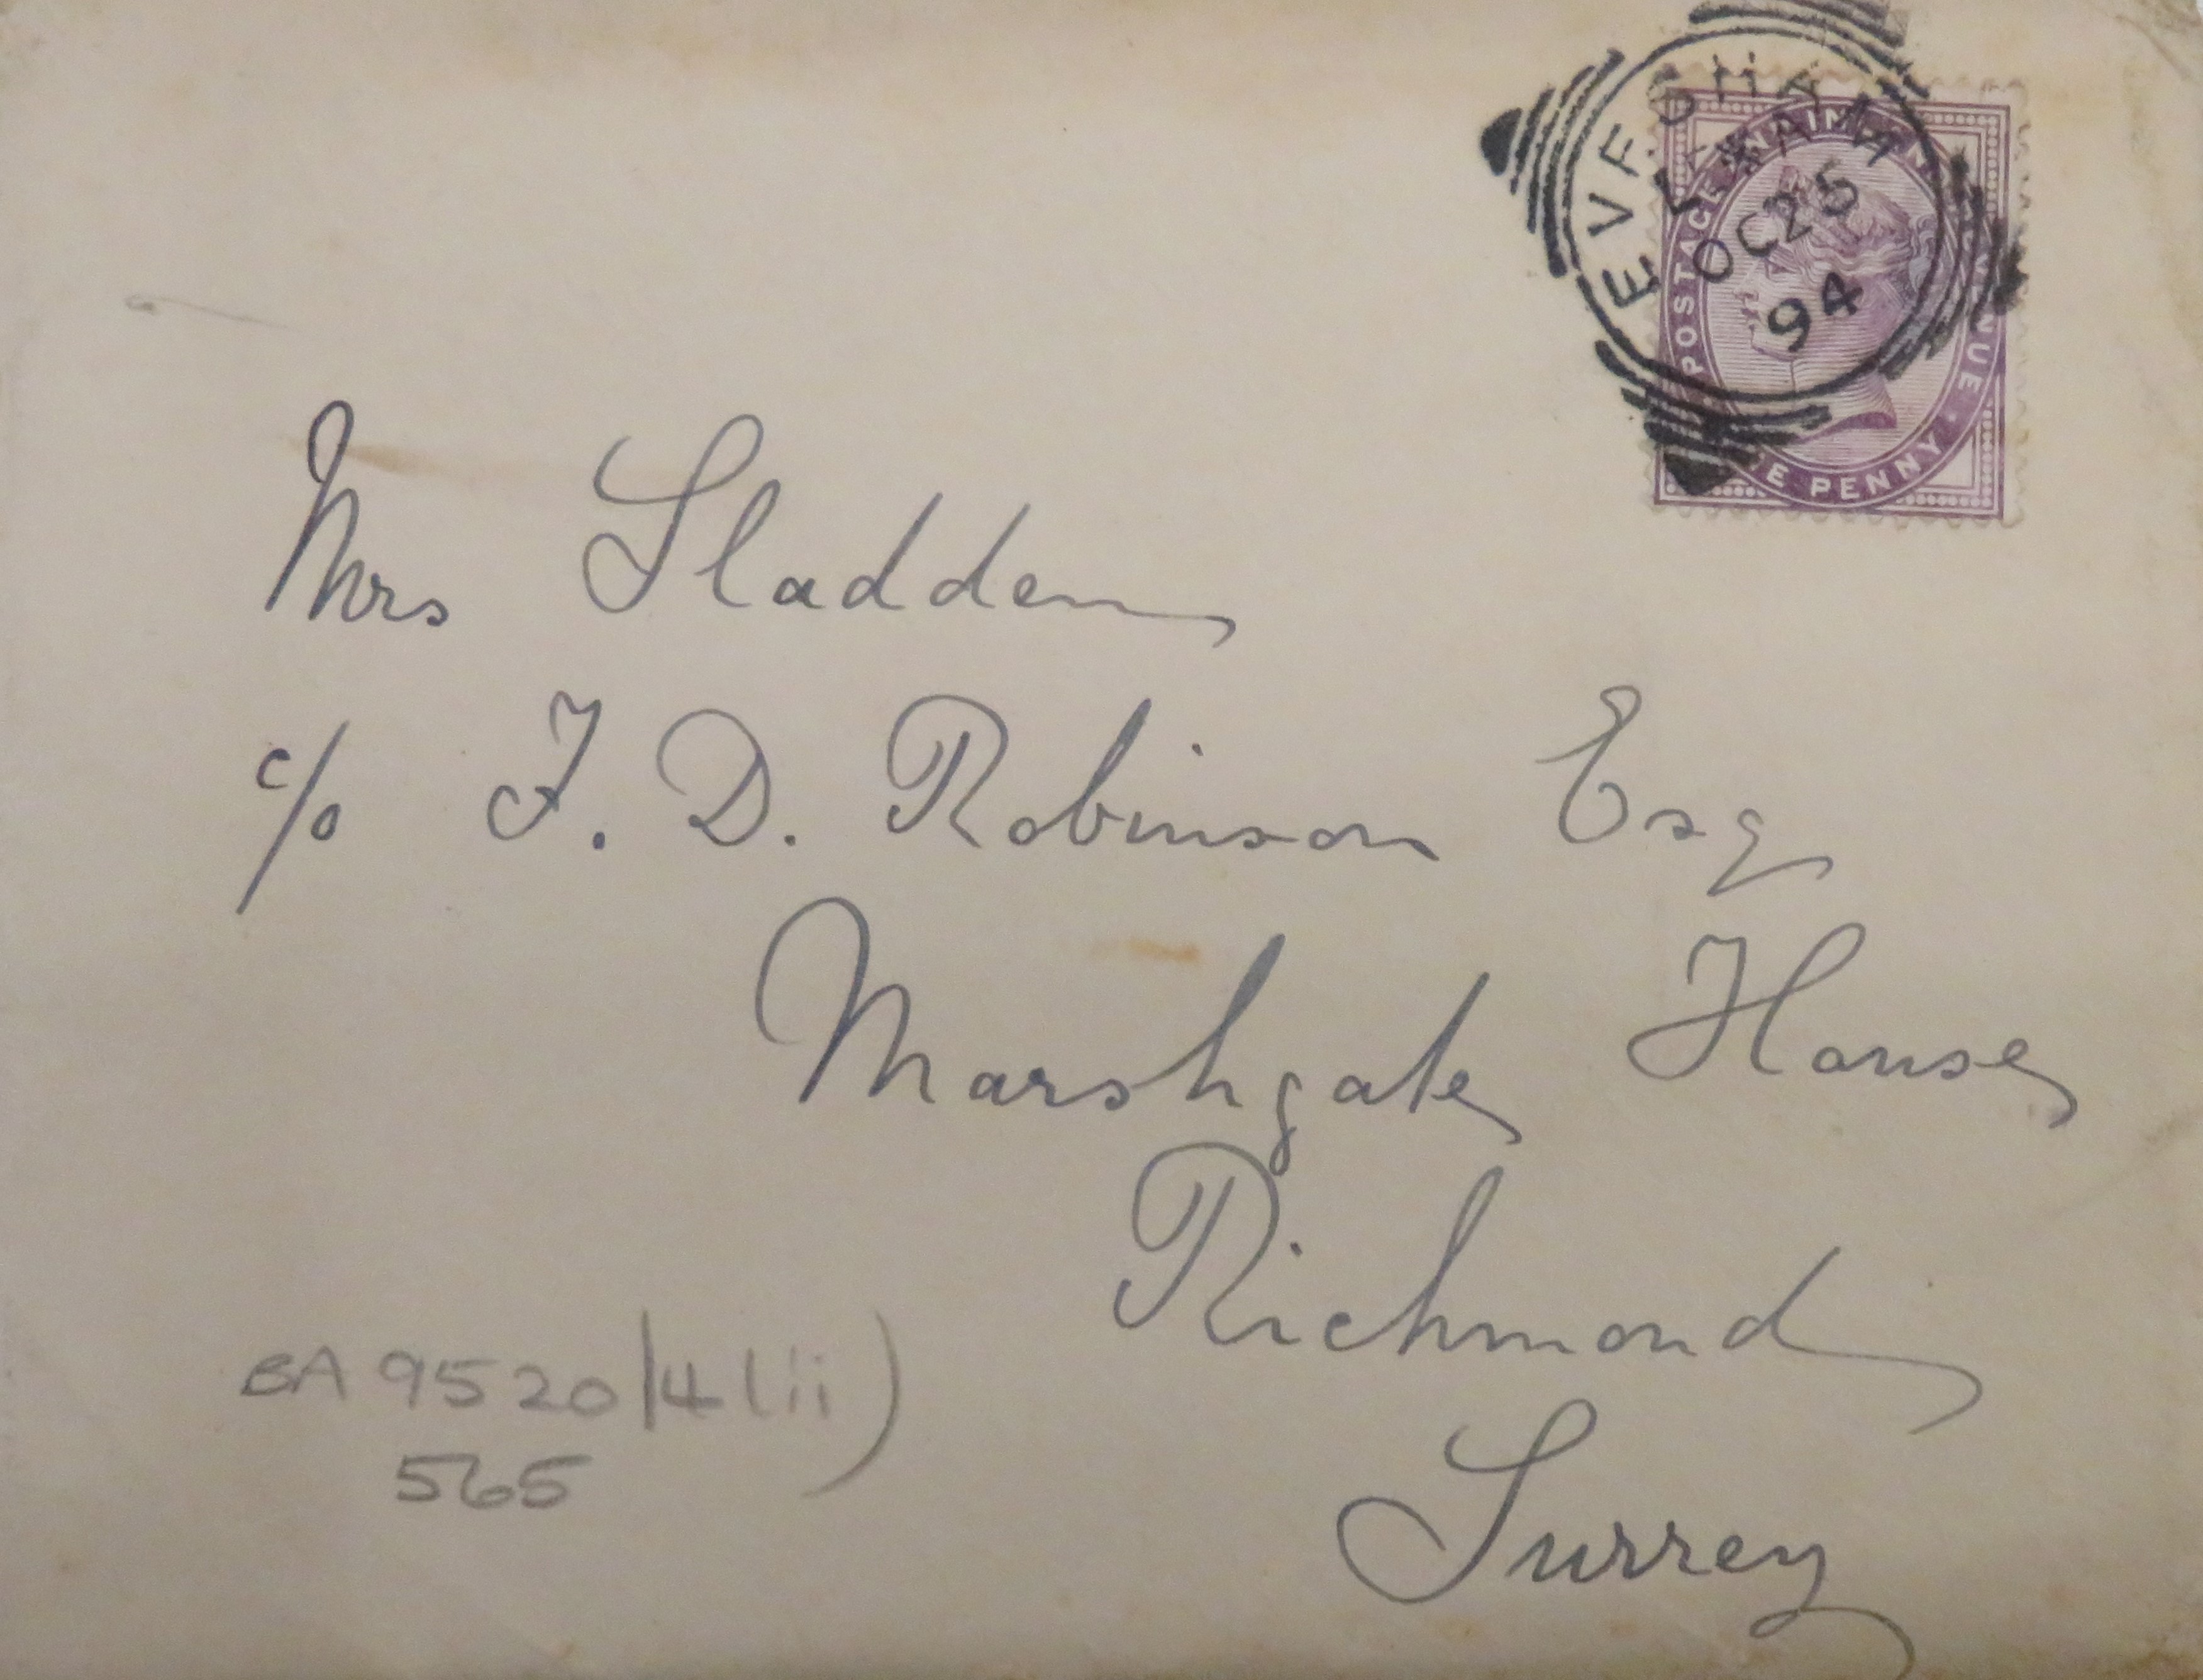 EVESHAM
OC 25
94
POSTAGE AND INLAND REVENUE
PENNY
Mrs Sladden
c/o F. D. Robinson Esq
Marshgate House
Richmond
Surrey
BA 9520/4(ii)
565